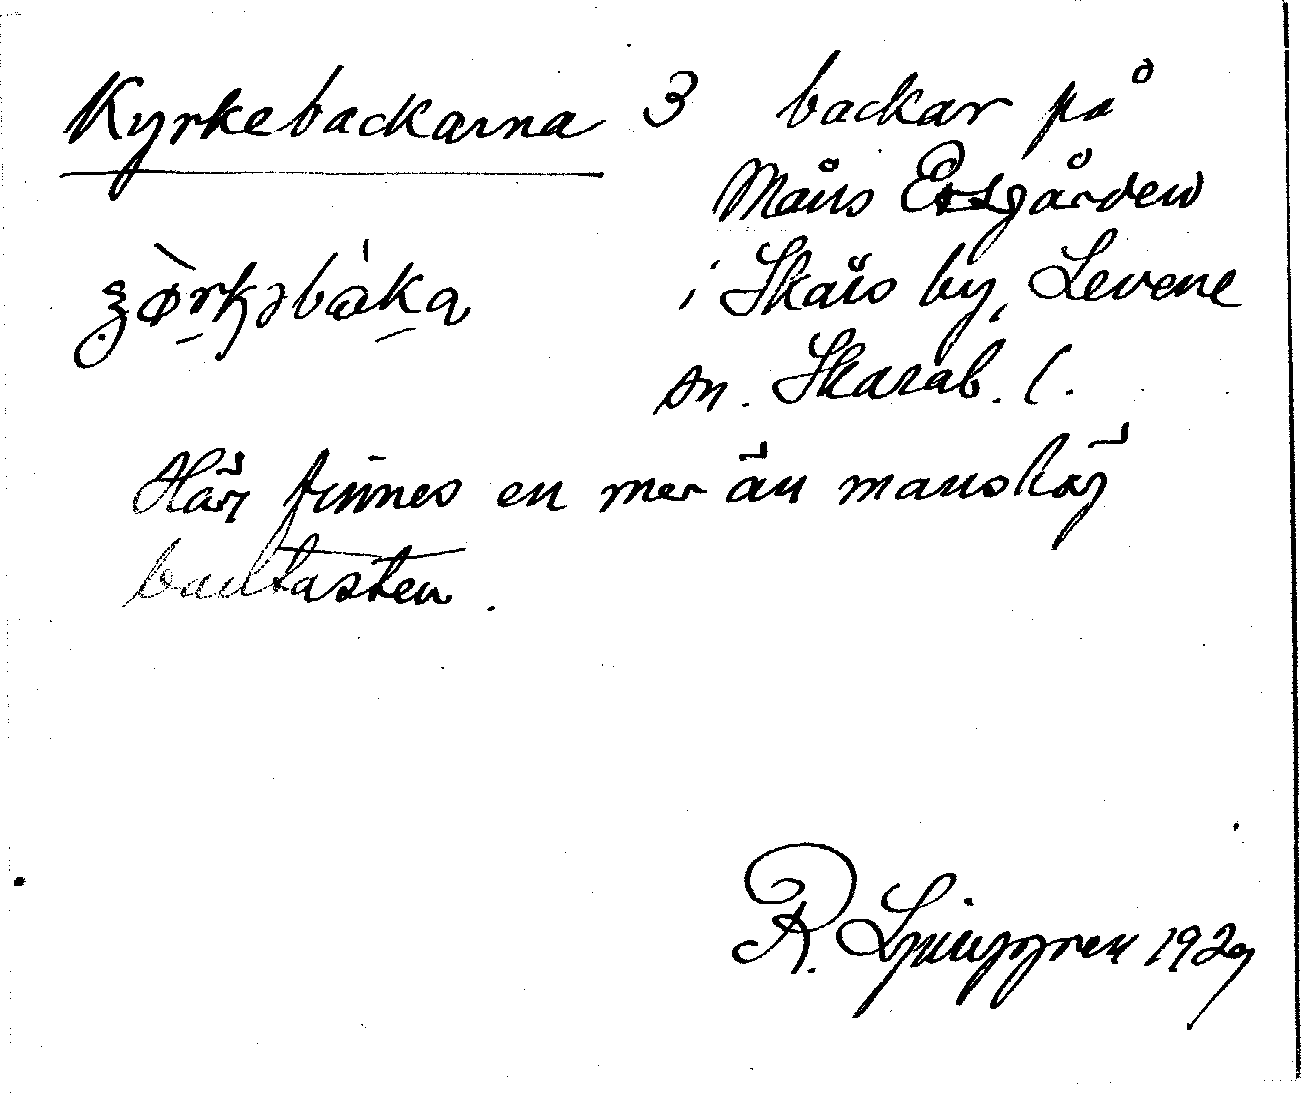 Kyrkebackarna 3 backar på
Måns Ersgården
i Skärs by, Levene
sn. Skarab. l.
Här finnes en mer än manshög
bautasten.
R. Ljunggren 1929